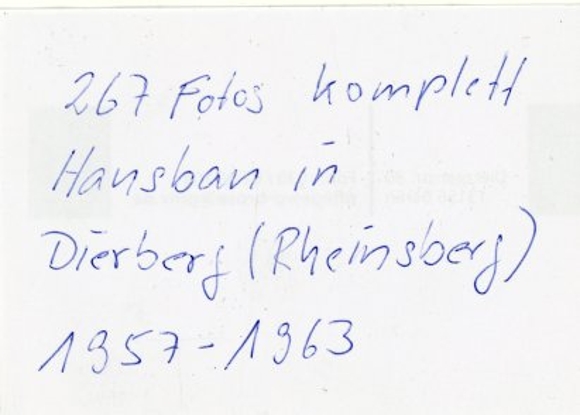 267 Fotos komplett
Hausbau in
Dierberg (Rheinsberg)
1957-1963